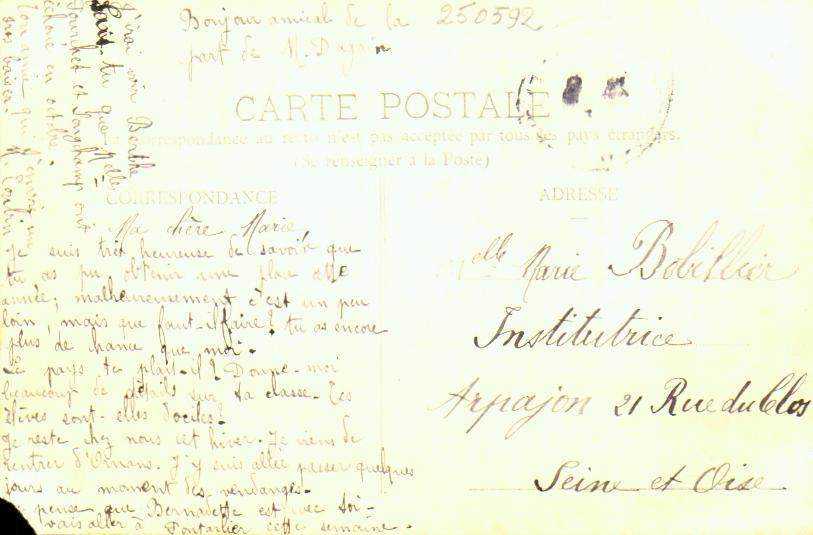 Bonjour amical de la
part de M. Dagain
250592
CARTE POSTALE
La correspondance au recto n'est pas acceptée par tous les pays étrangers.
(Se renseigner à la Poste)
CORRESPONDANCE
ADRESSE
Ma chère Marie,
Je suis très heureuse de savoir que
tu as pu obtenir une place cette
année, malheureusement c'est un peu
loin, mais que faut-il faire? tu as encore
plus de chance que moi.
Le pays te plait-il? Donne-moi
beaucoup de détails sur ta classe. Tes
élèves sont-elles dociles?
Je reste chez nous cet hiver. Je viens de
rentrer d'Ornans. J'y suis allée passer quelques
jours au moment des vendanges.
Je pense que Bernadette est avec toi.
vais aller à Pontarlier cette semaine.
J'irai voir Berthe
Sais-tu que Melle
et Longchamp ont
échoué en octobre.
Ton amie qui t'envoie un
gros baiser!
Melle Marie Bobillier
Institutrice
Arpajon 21 Rue du Clos
Seine et Oise